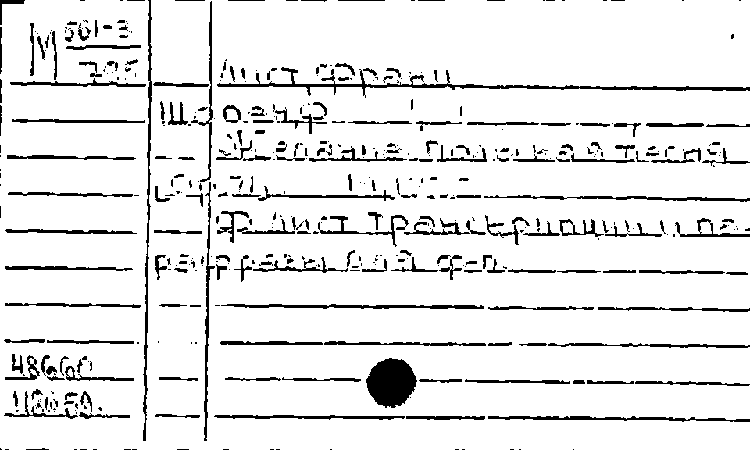 М 561-3
795
Лист, Франц
Шопен, Ф.
Желание. Польская песня
Ф. Лист Транскрипции и па-
рафразы для ф-п.
48660